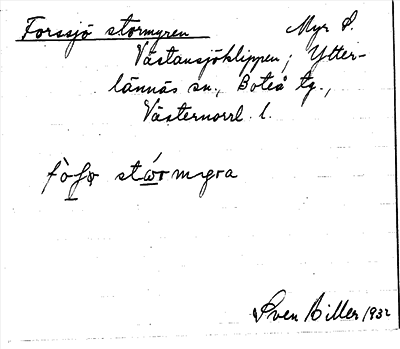 Forssjö stormyren Myr S.
Västansjöklippen; Ytter-
lännäs sn., Boteå tg.,
Västernorrl. l.
stormyra
Sven Biller 1932